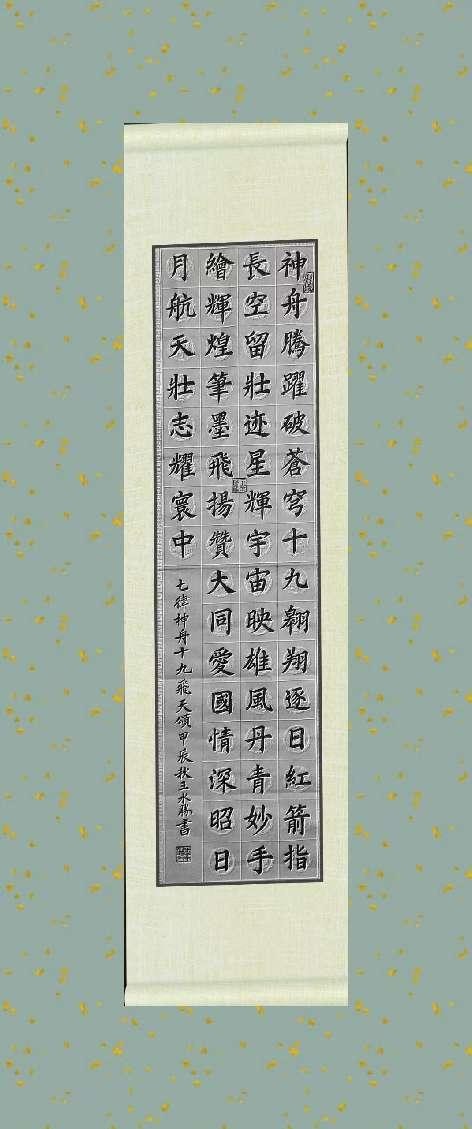 神舟騰躍破蒼穹十九翱翔逐日紅箭指
長空留壯迹星輝宇宙映雄風丹青妙手
繪輝煌筆墨飛揚贊大同愛國情深昭日
月航天壯志耀寰中
七律神舟十九飛天頌甲辰秋王水楊書